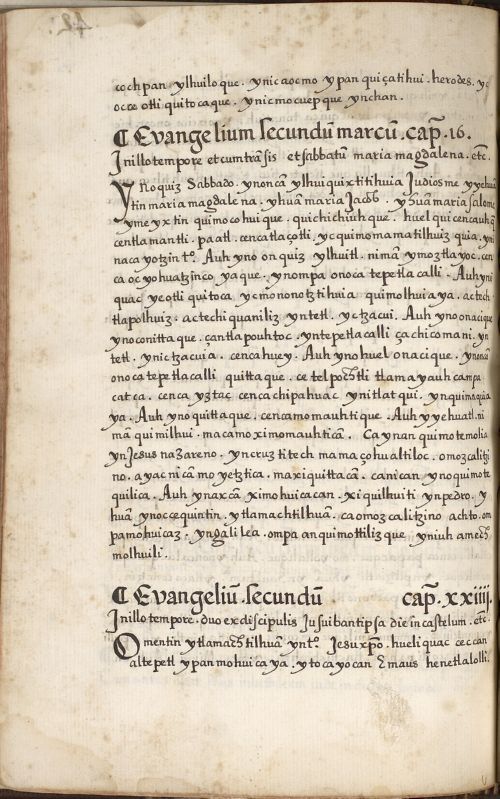 cochpan ylhuiloque. ynicaocmo ypan quiçatihui. herodes. yc
occe otli quitocaque. ynicmocuepque ynchan.
¶ Evangelium secundũ marcũ. cap̃. 16.
Jn illo tempore et cum trãsis et sabbatũ maria magdalena. etc̃.
Yno quiz Sabbado. ynoncã ylhuiquixtitihuia Judiosme yyehuã
tin maria magdalena. yhuã maria Jacõb. yhuã maria salome
yme yxtin quimocohuique. quichichiuhque. huel quicencauhq̃
centlamantli. paatl. cencatlaçotli. yc quimomamatilhuiz quia. yni
nacayotzin tº. Auh yno onquiz ylhuitl. nimã ymoztlayoc. cen
ca oc yohuatzinco yaque. ynompa onoca tepetlacalli. Auh yni
quac ye otli quitoca. yc mononotztihuia quimolhuiaya. actech
tlapolhuiz. actechiquaniliz yntetl. yctzacui. Auh yno onacique
ynoconittaque. çantlapouhtoc. yntepetlacalli ça chico mani. yn
tetl. ynictzacuia. cenca huey. Auh ynohuel onacique. ynonca
onoca tepetlacalli quittaque. ce telpochtli tlamayauhcampa
catca. cenca yztac cenca chipahuac ynitlatqui. ynquimaquia
ya. Auh ynoquittaque. cencamomauhtique. Auh yyehuatl. ni
mã quimilhui. macamo ximomauhticã. Ca ynan quimotemolia
yn Jesus nazareno. yncruztitech mamaçohualtiloc. omozcalitzi
no. ayac nicã moyetztica. maxiquittacã. canican ynoquimote
quilica. Auh ynaxcã ximohuicacan. xiquilhuiti yn pedro. y
huã ynoccequintin. ytlamachtilhuã. ca omozcalitzino achto. om
pamohuicaz. yngalilea. ompa anquimottilizque yniuh amech
molhuili.
¶ Evangeliũ. secundũ cap̃. xxiiij.
Jn illo tempore. duo ex discipulis Jusuibant ipsa die in castelum. etc.
Omentin ytlamachtilhuã yntº. Jesu xp̃o. hueliquac ceccan
altepetl ypan mohuicaya. ytocayocan Emaus henetlalolli.